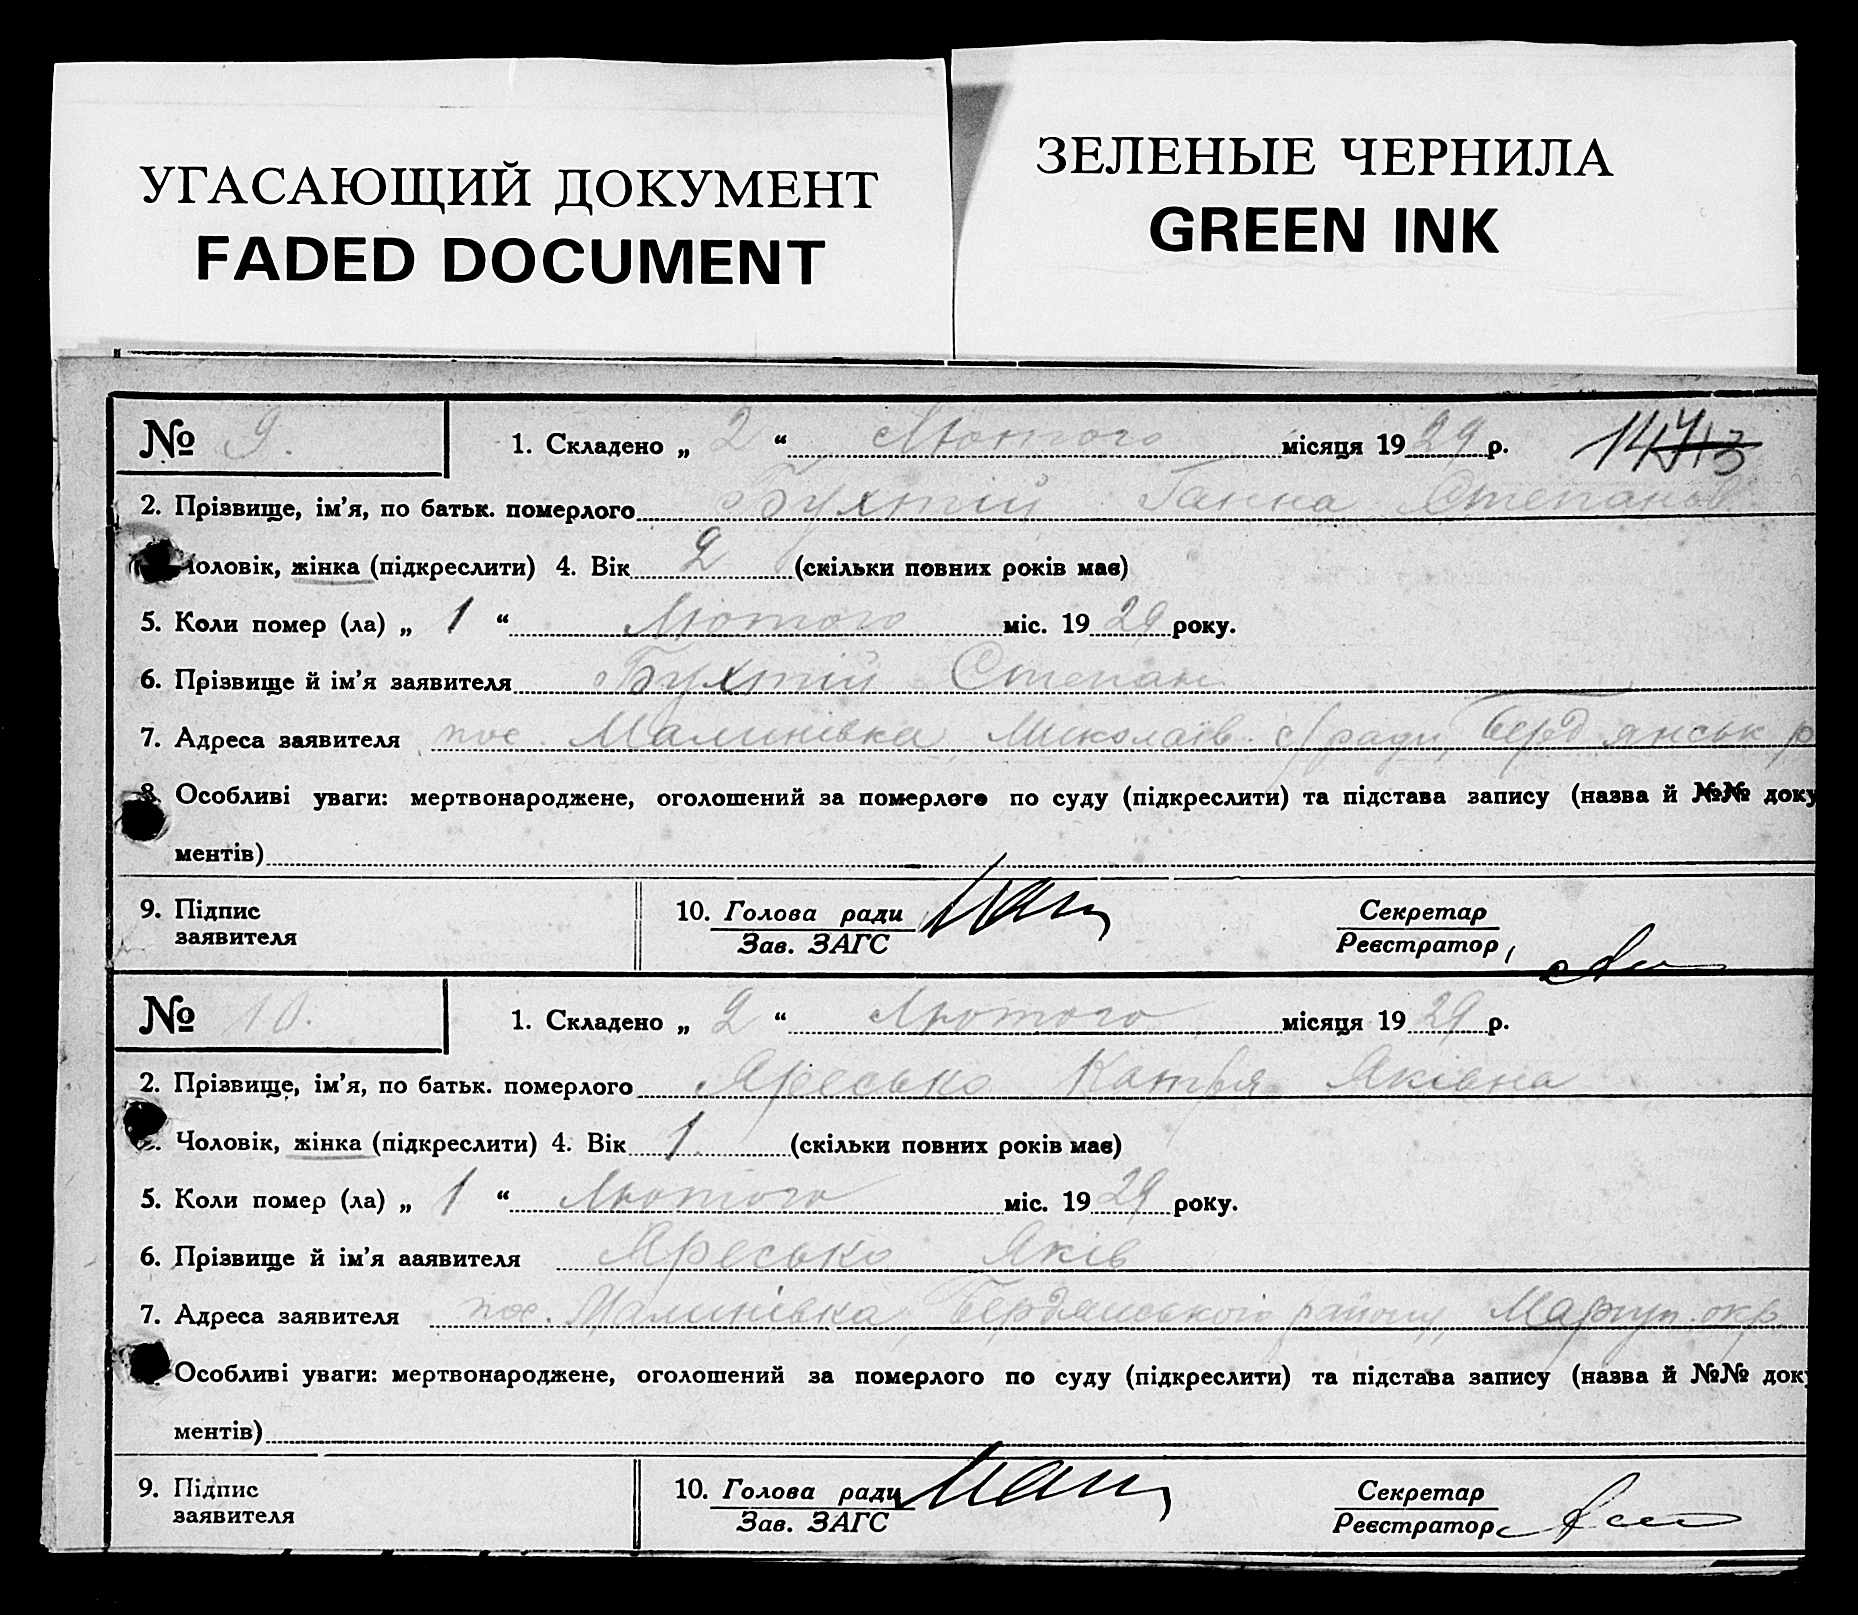 УГАСАЮЩИЙ ДОКУМЕНТ
FADED DOCUMENT
ЗЕЛЕНЫЕ ЧЕРНИЛА
GREEN INK
№ 9.
1. Складено „ 2 “ Лютого місяця 1929 р.
2. Прізвище, ім’я, по батьк. померлого Бухтій Ганна Степанов
Чоловік, жінка (підкреслити) 4. Вік 2 (скільки повних років має)
5. Коли помер (ла) „ 1 “ Лютого міс. 1929 року.
6. Прізвище й ім’я заявителя Бухтій Степан
7. Адреса заявителя пос. Малинівка, Миколаїв. с/ради, Бердянськ р
8. Особливі уваги: мертвонароджене, оголошений за померлого по суду (підкреслити) та підстава запису (назва й №№ доку
ментів)
9. Підпис заявителя
10. Голова ради
Зав. ЗАГС
Секретар
Реєстратор
№ 10.
1. Складено „ 2 “ Лютого місяця 1929 р.
2. Прізвище, ім’я, по батьк. померлого Яресько Катря Яківна
Чоловік, жінка (підкреслити) 4. Вік 1 (скільки повних років має)
5. Коли помер (ла) „ 1 “ Лютого міс. 1929 року.
6. Прізвище й ім’я ааявителя Яресько Яків
7. Адреса заявителя пос. Малинівка, Бердянського району, Маріуп. окр.
Особливі уваги: мертвонароджене, оголошений за померлого по суду (підкреслити) та підстава запису (назва й №№ доку
ментів)
9. Підпис заявителя
10. Голова ради
Зав. ЗАГС
Секретар
Реєстратор